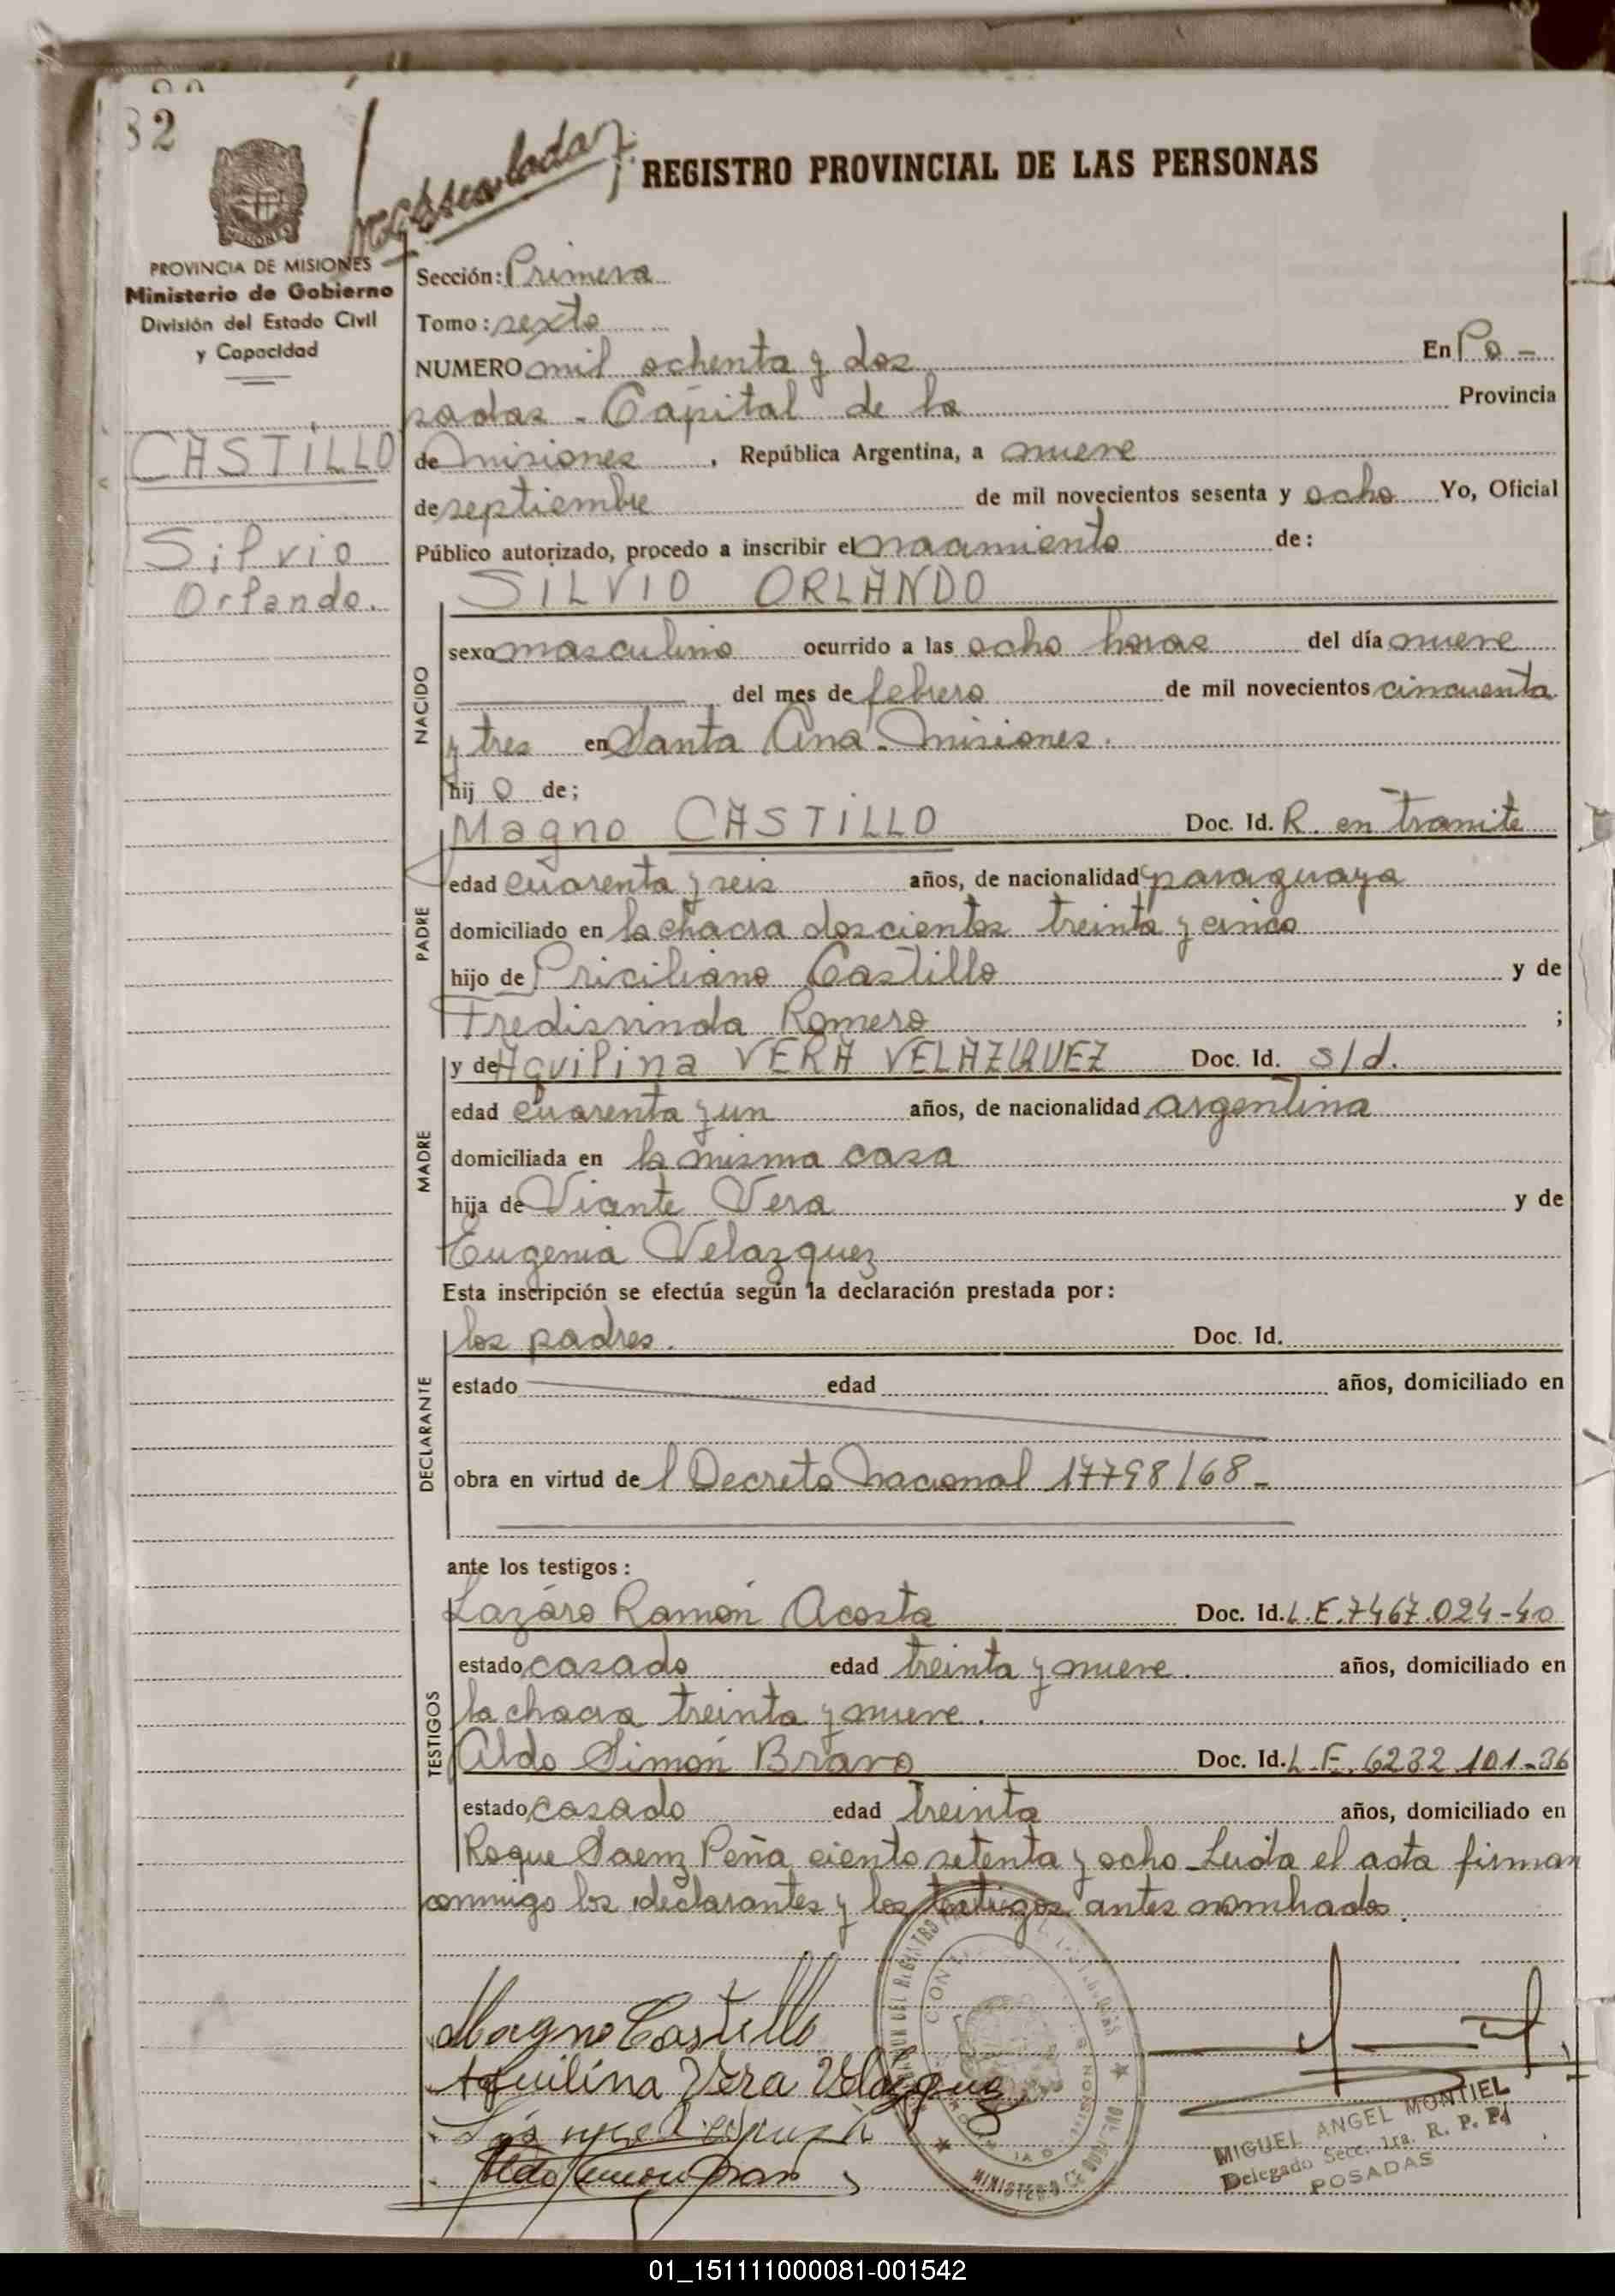 82
REGISTRO PROVINCIAL DE LAS PERSONAS
PROVINCIA DE MISIONES
Ministerio de Gobierno
División del Estado Civil
y Capacidad
CASTILLO
Silvio
Orlando.
Sección: Primera
Tomo: sexto
NUMERO mil ochenta y dos En Po-
sadas - Capital de la Provincia
de Misiones, República Argentina, a nueve
de septiembre de mil novecientos sesenta y ocho Yo, Oficial
Público autorizado, procedo a inscribir el nacimiento de:
SILVIO ORLANDO
NACIDO
sexo masculino ocurrido a las ocho horas del día nueve
del mes de febrero de mil novecientos cincuenta
y tres en Santa Ana - Misiones.
hijo de;
PADRE
Magno CASTILLO Doc. Id. R. en tramite
edad cuarenta y seis años, de nacionalidad paraguaya
domiciliado en la chacra doscientos treinta y cinco
hijo de Priciliano Castillo y de
Fredisvinda Romero ;
MADRE
y de Aquilina VERA VELAZQUEZ Doc. Id. s/d.
edad cuarenta y un años, de nacionalidad argentina
domiciliada en la misma casa
hija de Vicente Vera y de
Eugenia Velazquez
Esta inscripción se efectúa según la declaración prestada por:
DECLARANTE
los padres. Doc. Id.
estado edad años, domiciliado en
obra en virtud de l Decreto Nacional 17798/68-
ante los testigos:
TESTIGOS
Lazáro Ramón Acosta Doc. Id. L.E. 7467.024-40
estado casado edad treinta y nueve. años, domiciliado en
la chacra treinta y nueve.
Aldo Simón Bravo Doc. Id. L.E. 6232.101-36
estado casado edad treinta años, domiciliado en
Roque Saenz Peña ciento setenta y ocho - Leida el acta firman
conmigo los declarantes y los testigos antes nombrados.
Magno Castillo
Aquilina Vera Velázquez
MINISTERIO DE GOBIERNO
MIGUEL ANGEL MONTIEL
Delegado Secc. 1ra. R. P. Pd
POSADAS
01_151111000081-001542